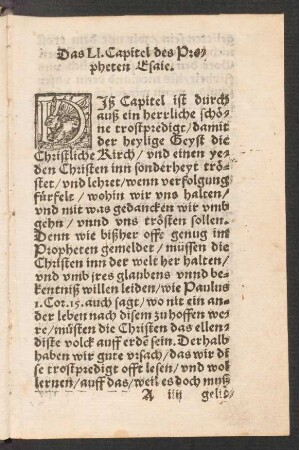 Das LI. Capitel des Pro-
pheten Esaie.
DIß Capitel ist durch
auß ein herrliche schö-
ne trostpredigt / damit
der heylige Geyst die
Christliche Kirch / vnd einen ye-
den Christen inn sonderheyt trö-
stet / vnd lehret / wenn verfolgung
fürfelt / wohin wir vns halten /
vnd mit was gedancken wir vmb
gehn / vnnd vns trösten sollen.
Denn wie bißher offt genug im
Propheten gemeldet / müssen die
Christen inn der welt her halten /
vnd vmb jres glaubens vnnd be-
kentniß willen leiden / wie Paulus
1. Cor. 15. auch sagt / wo nit ein an-
der leben nach disem zu hoffen we-
re / müsten die Christen das ellen-
diste volck auff erden sein. Derhalb
haben wir gute vrsach / das wir di-
se trostpredigt offt lesen / vnd wol
lernen / auff das / weil es doch muß
A iiij gelid-